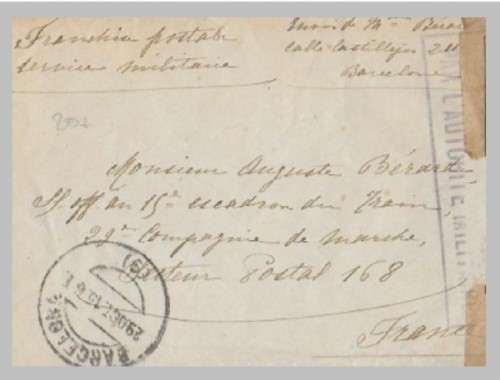 Franchise postale
service militaire
Envoi de Mme Bérard
calle Castillejos 211
Barcelone
201
Monsieur Auguste Bérard
S/off au 15e escadron du Train,
22e Compagnie de marche,
Secteur Postal 168
France
PAR L'AUTORITÉ MILIT
BARCELONA
(9)